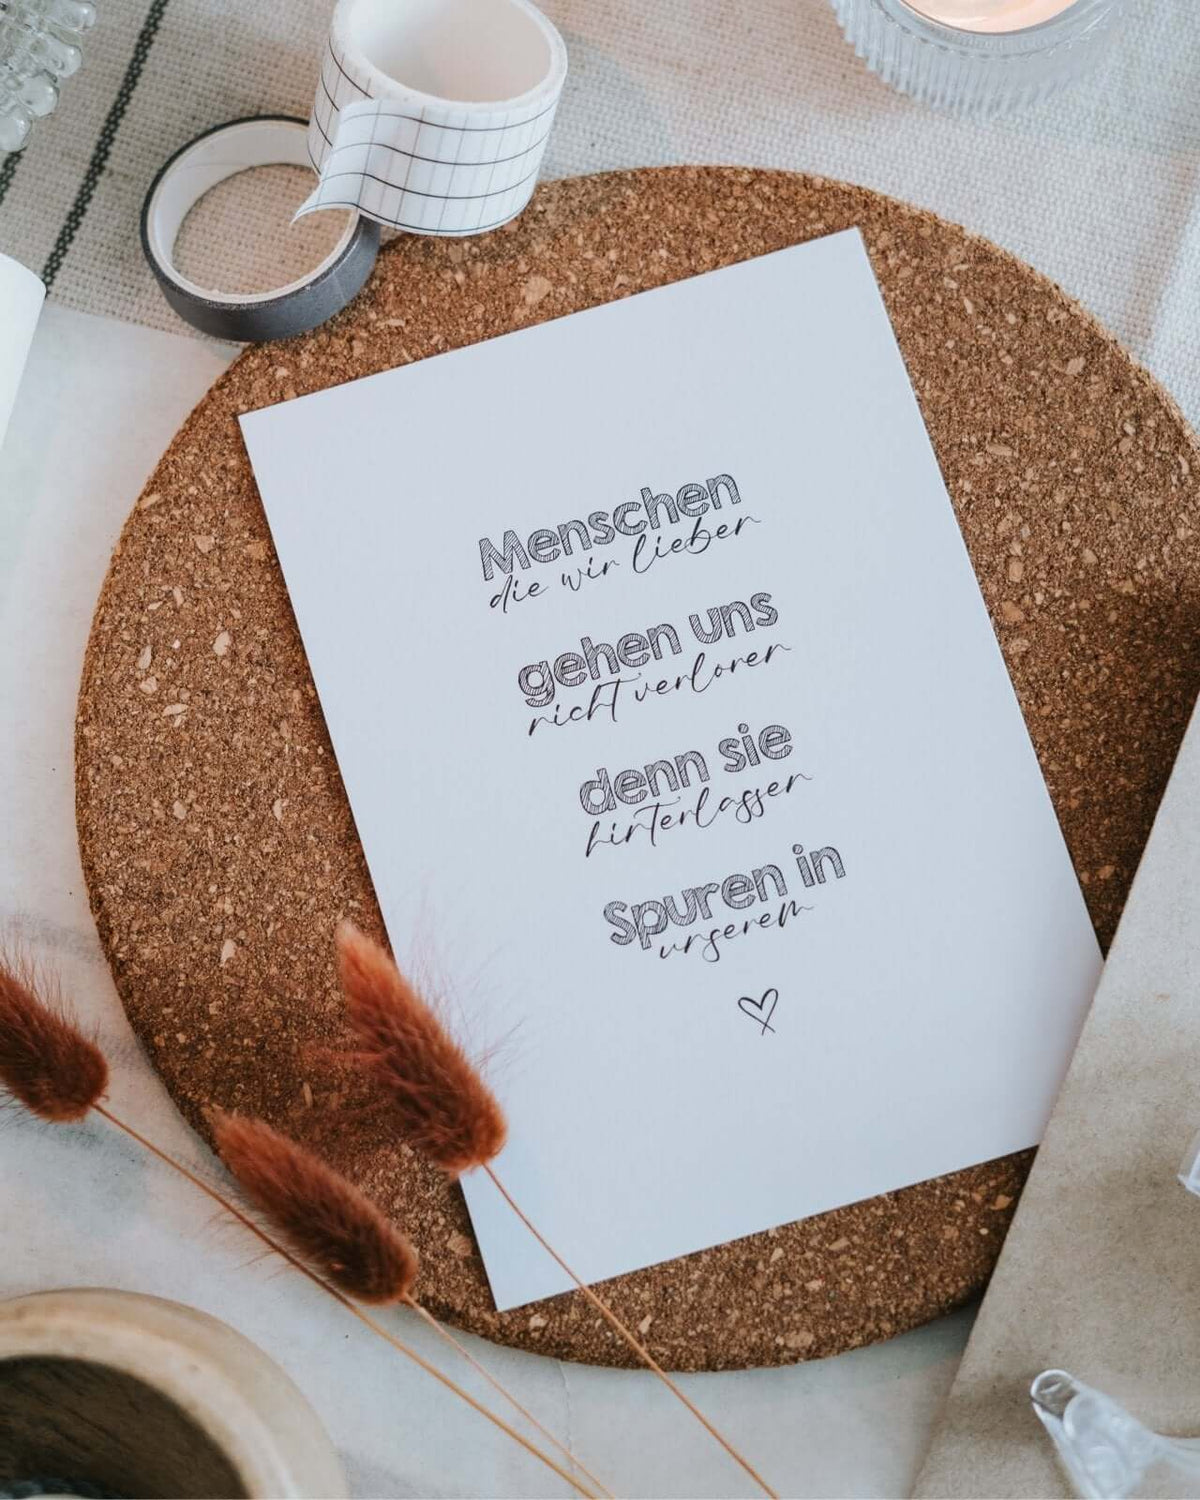 Menschen
die wir lieben
gehen uns
nicht verloren
denn sie
hinterlassen
Spuren in
unserem